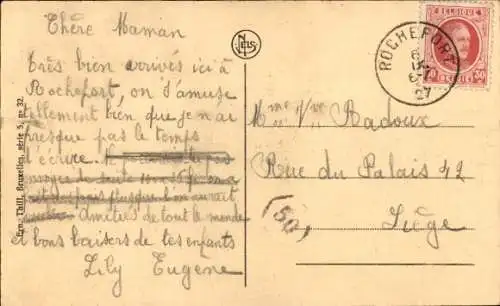 Chère Maman
Très bien arrivés ici à
Rochefort, on s'amuse
tellement bien que je n'ai
presque pas le temps
d'écrire.
Amitiés de tout le monde
et bons baisers de tes enfants
Lily Eugène
Ern. Thill, Bruxelles, série 5, n° 32.
NELS
ROCHEFORT
27
BELGIQUE
30
Mme Vve Radoux
Rue du Palais 42
(50)
Liège